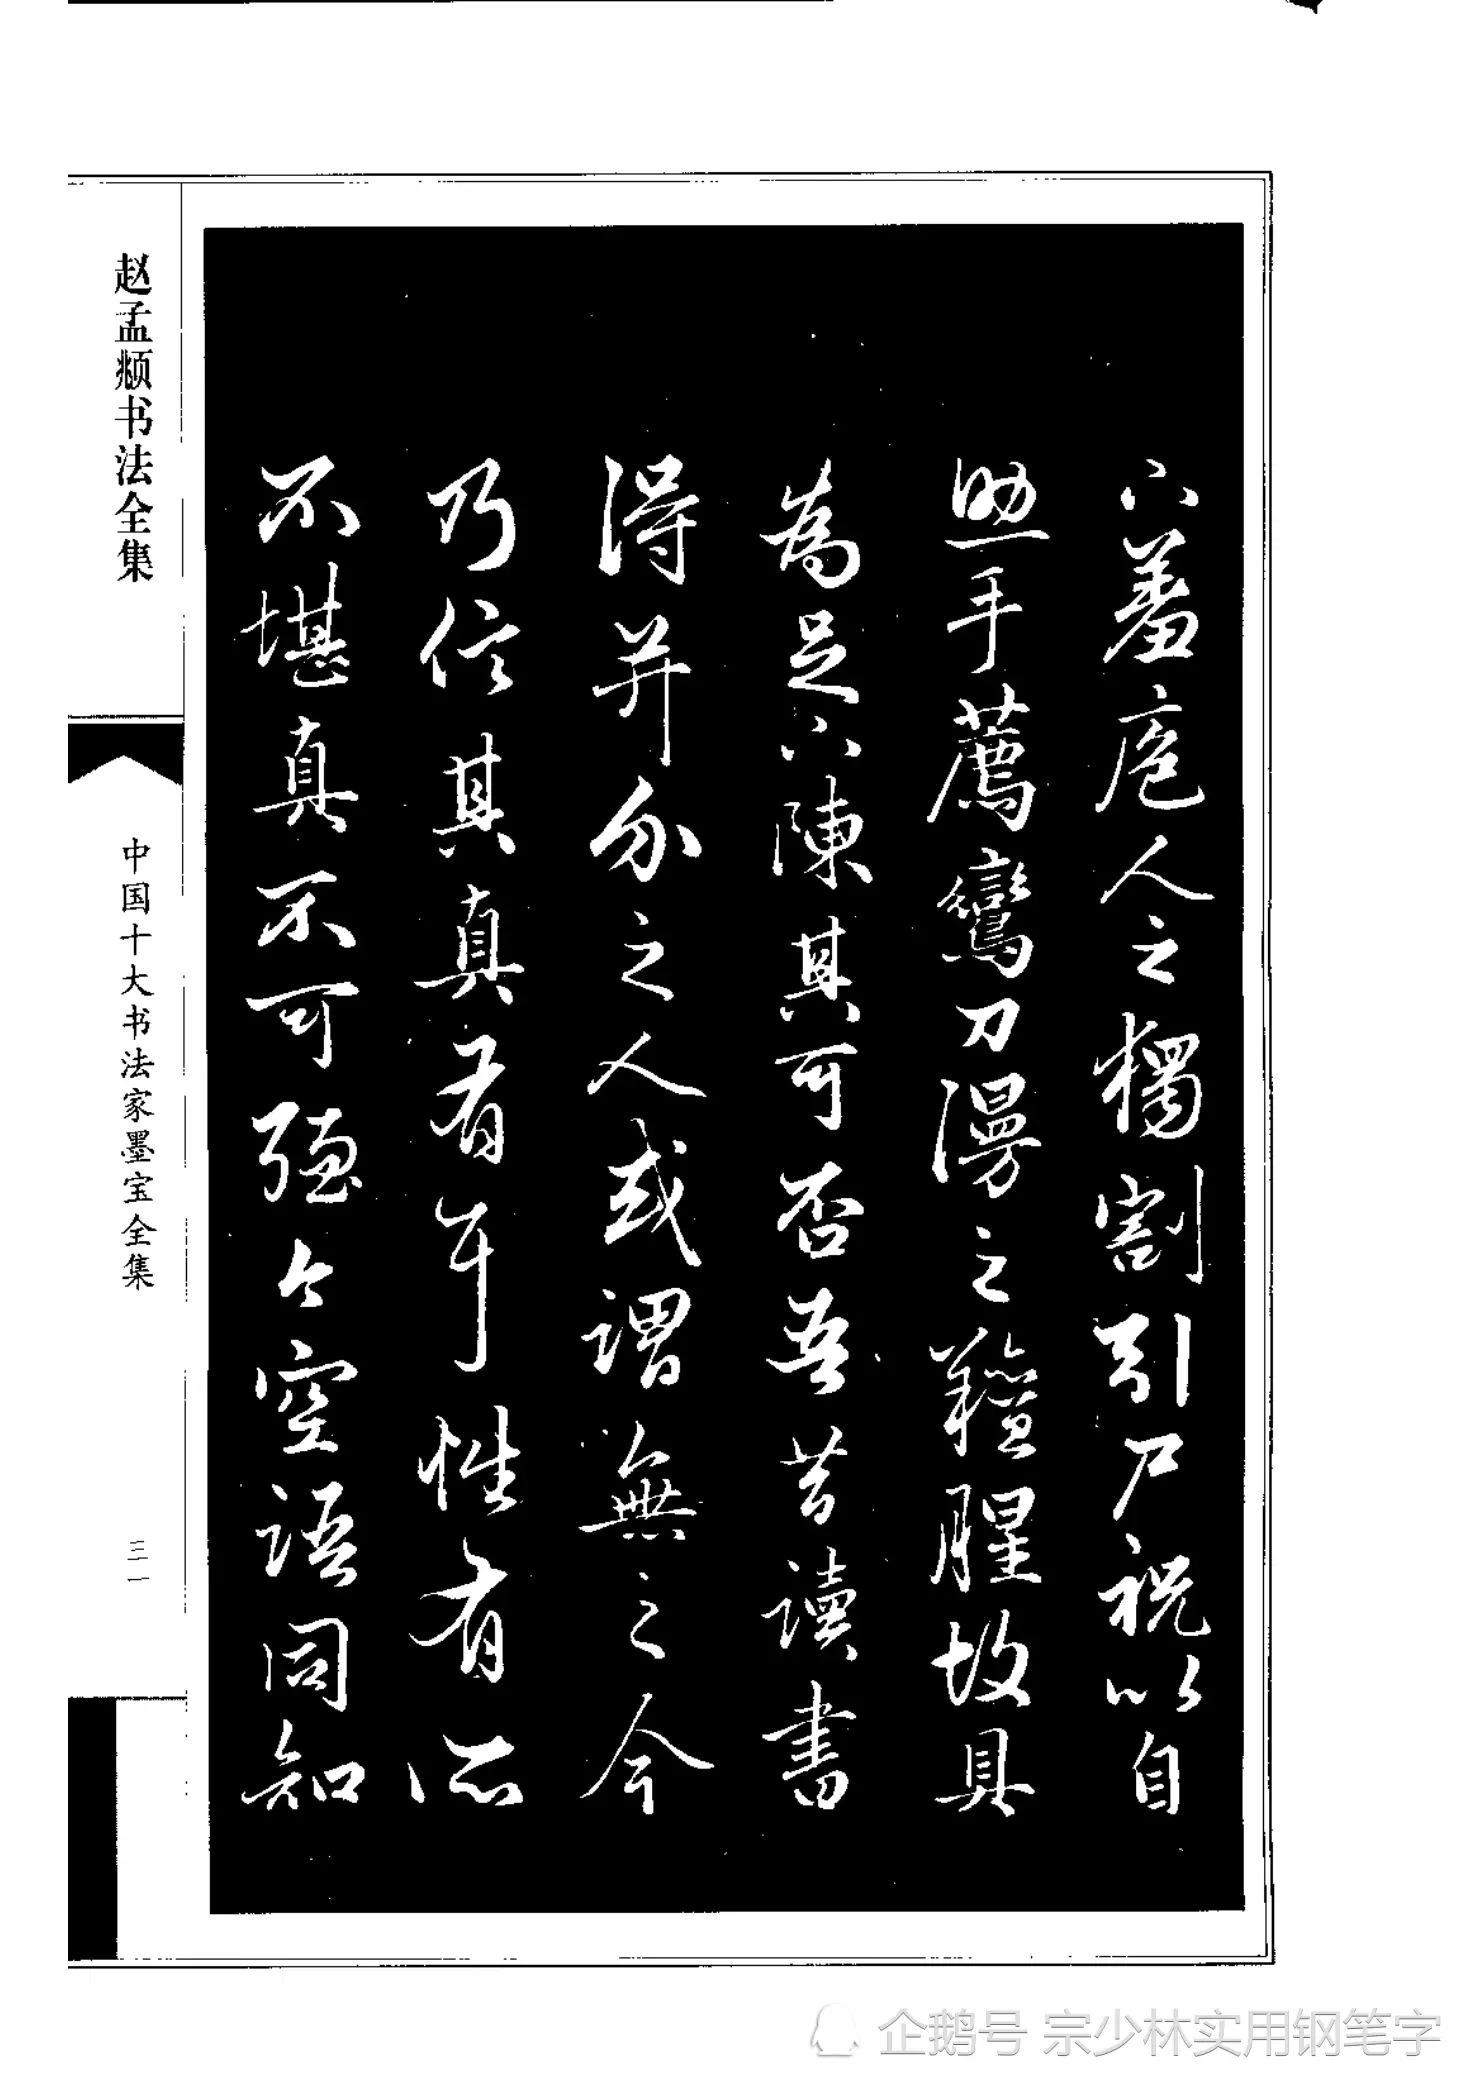 下羞庖人之獨割引尸祝以自
助手薦鸞刀漫之羶腥故具
為足下陳其可否吾昔讀書
得并介之人或謂無之今
乃信其真有耳性有所
不堪真不可強今空語同知
赵孟頫书法全集
中国十大书法家墨宝全集
三一
企鹅号 宗少林实用钢笔字